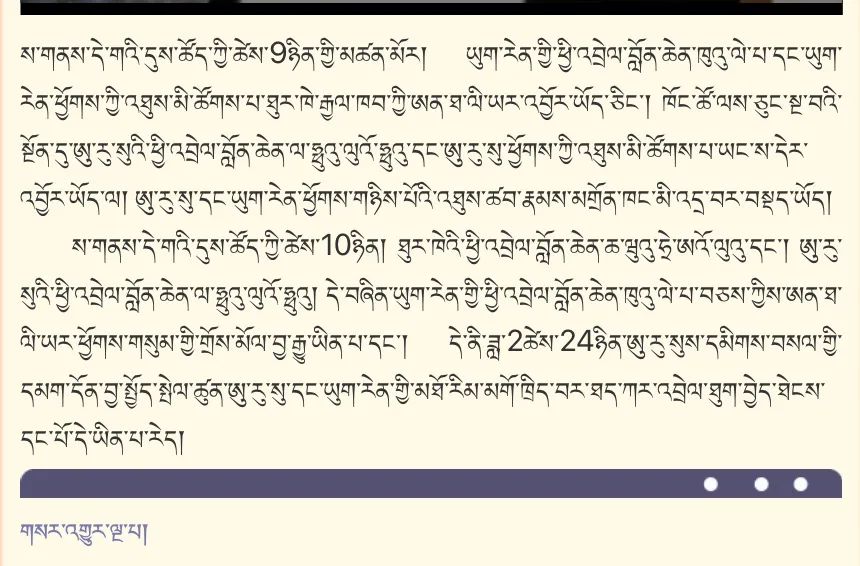 ས་གནས་དེ་གའི་དུས་ཚོད་ཀྱི་ཚེས་9ཉིན་གྱི་མཚན་མོར། ཡུག་རེན་གྱི་ཕྱི་འབྲེལ་བློན་ཆེན་ཁུའུ་ལེ་པ་དང་ཡུག་
རེན་ཕྱོགས་ཀྱི་འཐུས་མི་ཚོགས་པ་ཐུར་ཁེ་རྒྱལ་ཁབ་ཀྱི་ཨན་ཐ་ལི་ཡར་འབྱོར་ཡོད་ཅིང་། ཁོང་ཚོ་ལས་ཅུང་སྔ་བའི་
སྔོན་དུ་ཨུ་རུ་སུའི་ཕྱི་འབྲེལ་བློན་ཆེན་ལ་ཧྥུའུ་ལུའོ་ཧྥུའུ་དང་ཨུ་རུ་སུ་ཕྱོགས་ཀྱི་འཐུས་མི་ཚོགས་པ་ཡང་ས་དེར་
འབྱོར་ཡོད་ལ། ཨུ་རུ་སུ་དང་ཡུག་རེན་ཕྱོགས་གཉིས་པོའི་འཐུས་ཚབ་རྣམས་མགྲོན་ཁང་མི་འདྲ་བར་བསྡད་ཡོད།
ས་གནས་དེ་གའི་དུས་ཚོད་ཀྱི་ཚེས་10ཉིན། ཐུར་ཁེའི་ཕྱི་འབྲེལ་བློན་ཆེན་ཆ་ཝུའུ་ཧྲེ་ཨའོ་ལུའུ་དང་། ཨུ་རུ་
སུའི་ཕྱི་འབྲེལ་བློན་ཆེན་ལ་ཧྥུའུ་ལུའོ་ཧྥུའུ། དེ་བཞིན་ཡུག་རེན་གྱི་ཕྱི་འབྲེལ་བློན་ཆེན་ཁུའུ་ལེ་པ་བཅས་ཀྱིས་ཨན་ཐ་
ལི་ཡར་ཕྱོགས་གསུམ་གྱི་གྲོས་མོལ་བྱ་རྒྱུ་ཡིན་པ་དང་། དེ་ནི་ཟླ་2ཚེས་24ཉིན་ཨུ་རུ་སུས་དམིགས་བསལ་གྱི་
དམག་དོན་བྱ་སྤྱོད་སྤེལ་ཚུན་ཨུ་རུ་སུ་དང་ཡུག་རེན་གྱི་མཐོ་རིམ་མགོ་ཁྲིད་བར་ཐད་ཀར་འབྲེལ་ཐུག་བྱེད་ཐེངས་
དང་པོ་དེ་ཡིན་པ་རེད།
གསར་འགྱུར་ལྔ་པ།